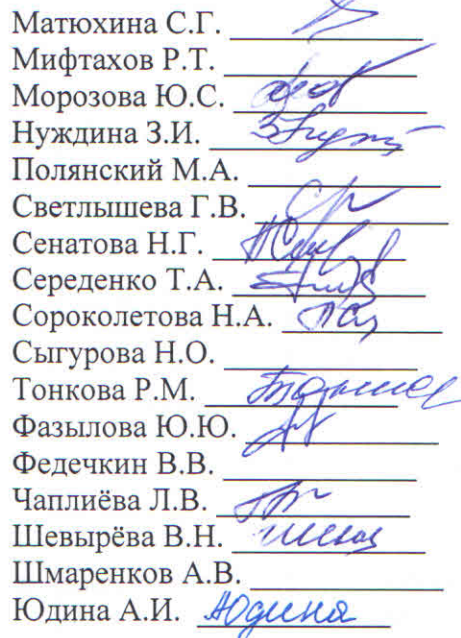 Матюхина С.Г.
Мифтахов Р.Т.
Морозова Ю.С.
Нуждина З.И.
Полянский М.А.
Светлышева Г.В.
Сенатова Н.Г.
Середенко Т.А.
Сороколетова Н.А.
Сыгурова Н.О.
Тонкова Р.М.
Фазылова Ю.Ю.
Федечкин В.В.
Чаплиёва Л.В.
Шевырёва В.Н.
Шмаренков А.В.
Юдина А.И. Юдина